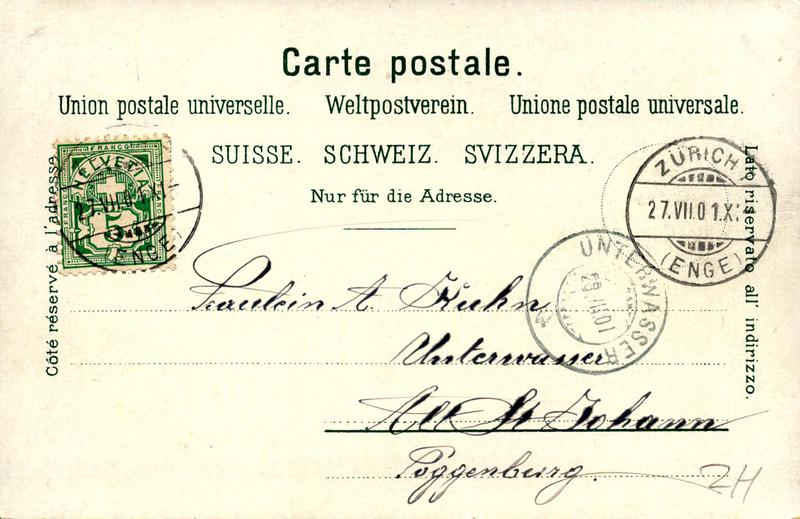 Carte postale.
Union postale universelle. Weltpostverein. Unione postale universale.
SUISSE. SCHWEIZ. SVIZZERA.
Nur für die Adresse.
Côté réservé à l'adresse.
Lato riservato all' indirizzo.
FRANCO
HELVETIA
FRANCO
5
(ENGE)
ZÜRICH
27.VII.01.X
(ENGE)
UNTERWASSER
29.VII.01
Fräulein A. Kuhn
Unterwasser
Alt St Johann
Toggenburg.
ZH